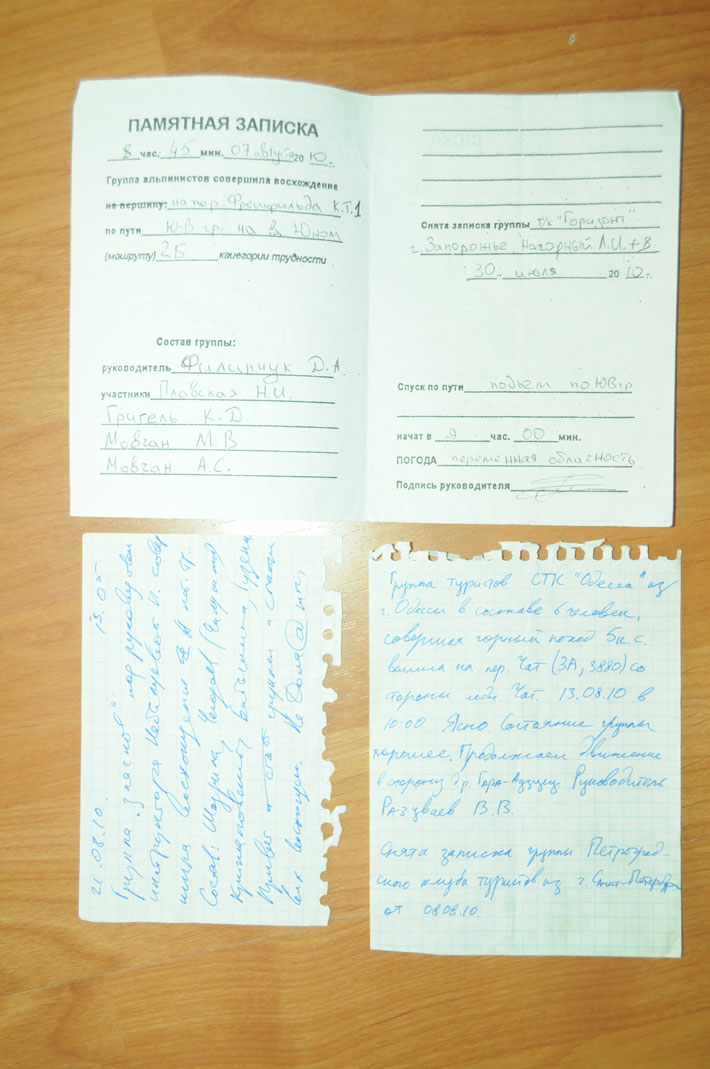 ПАМЯТНАЯ ЗАПИСКА
8 час. 45 мин. 07 августа 20 10 г.
Группа альпинистов совершила восхождение
не вершину: на пер. Фрешфильда К.Т.1
по пути Ю-В гр. на в. Юном
(маршруту) 2Б категории трудности
Состав группы:
руководитель Филипчук Д.А.
участники Плавская Н.И.
Григель К.Д.
Мовчан М.В
Мовчан А.С.
Снята записка группы т/к "Горизонт"
г. Запорожье Нагорный Л.И. + 8
30 июля 20 10 г.
Спуск по пути подьем по ЮВгр
начат в 9 час. 00 мин.
ПОГОДА переменная облачность
Подпись руководителя
21.08.10. 13.05
Группа под руководством
инструктора И. совер
шила восхождение на
Состав: Шаурина,
Привет группам и
всех восходящих.
Группа туристов СТК "Одесса" из
г. Одессы в составе 6 человек,
совершая горный поход 5 к.с.
вышла на пер. Чат (3А, 3880) со
стороны ледн. Чат. 13.08.10 в
10:00 Ясно. Состояние группы
хорошее. Продолжаем движение
в сторону Руководитель
Разуваев В.В.
Снята записка группы Петроград-
ского клуба туристов из г. Санкт-Петербург
от 08.08.10.